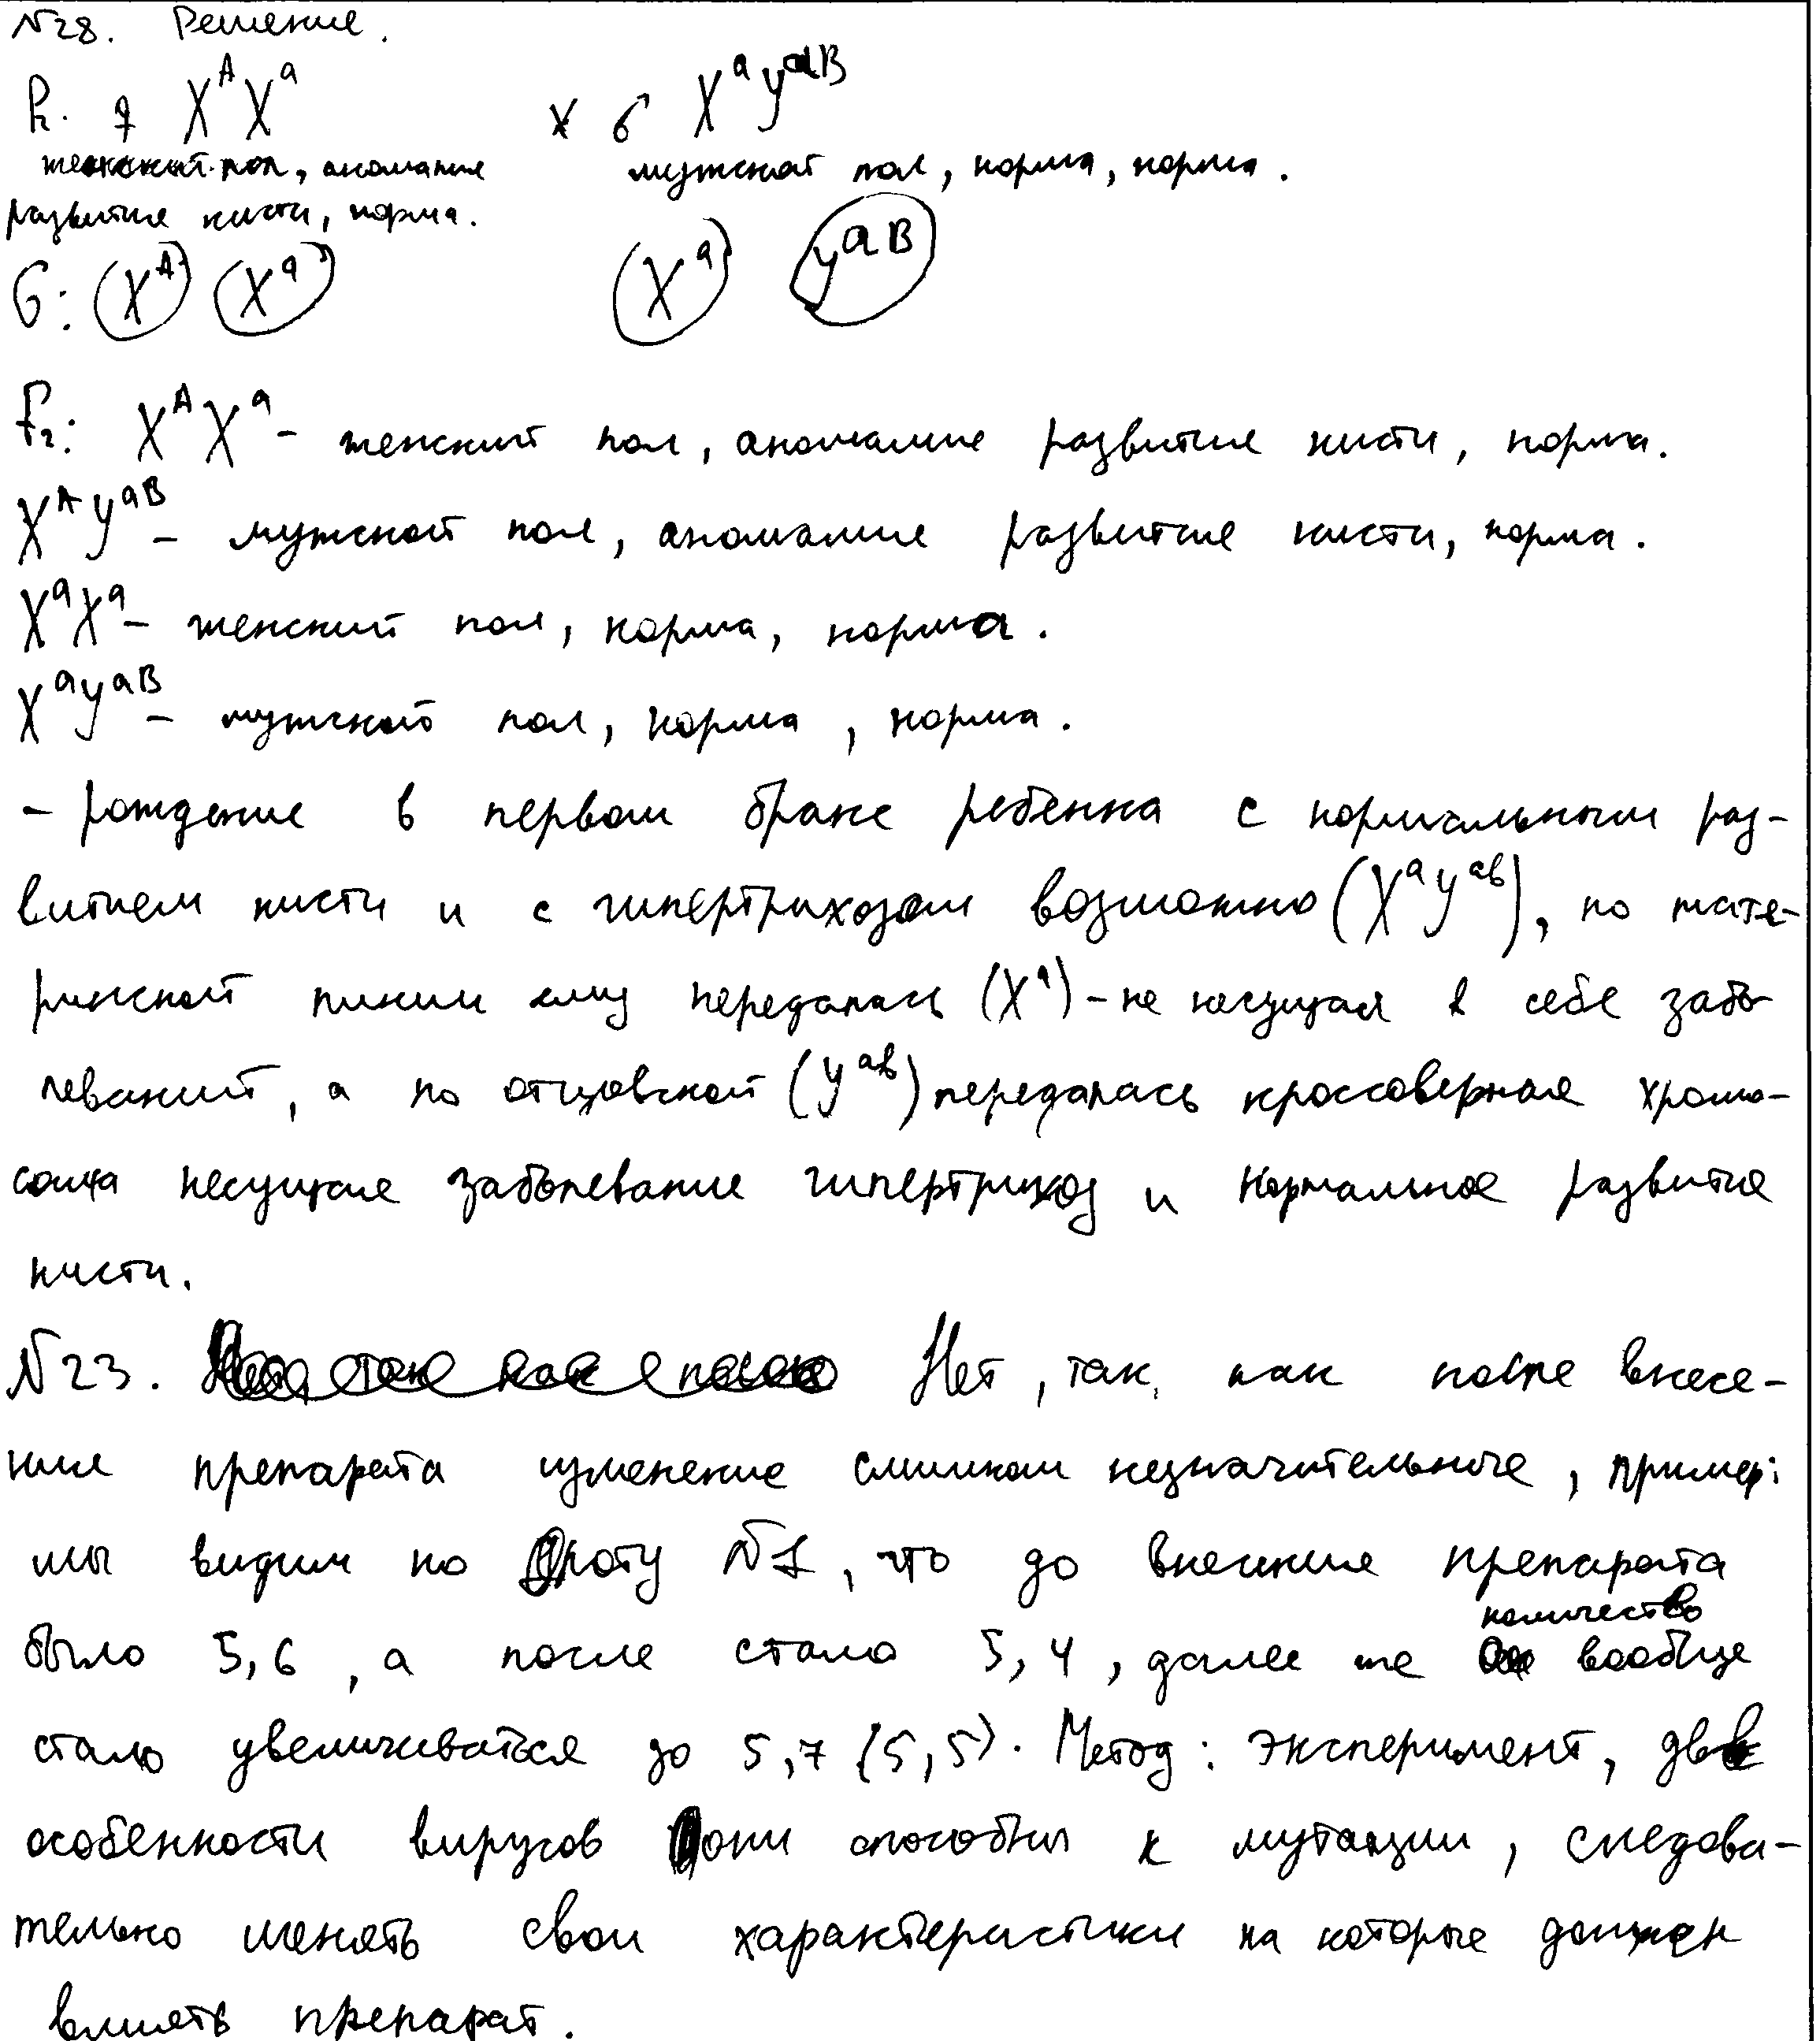 №28. Решение.
P₂. ♀ XᴬXᵃ x ♂ XᵃYᵃᴮ
женский пол, аномалие мужской пол, норма, норма.
развитие кисти, норма.
G: (Xᴬ) (Xᵃ) (Xᵃ) (Yᵃᴮ)
F₂: XᴬXᵃ - женский пол, аномалие развитие кисти, норма.
XᴬYᵃᴮ - мужской пол, аномалие развитие кисти, норма.
XᵃXᵃ - женский пол, норма, норма.
XᵃYᵃᴮ - мужской пол, норма, норма.
- рождение в первом браке ребенка с нормальным раз-
витием кисти и с гипертрихозом возможно (XᵃYᵃᵇ), по мате-
ринской линии ему передалась (Xᵃ) - не несущая в себе забо-
леваний, а по отцовской (Yᵃᵇ) передалась кроссоверная хромо-
сома несущие заболевание гипертрихоз и нормальное развитие
кисти.
№23. Нет, так, как после внесе-
ние препарата изменение слишком незначительное, пример:
мы видим по фото №1, что до внесение препарата
было 5,6, а после стало 5,4, далее же количество вообще
стало увеличиваться до 5,7 (5,5). Метод: эксперимент, две
особенности вирусов они способны к мутации, следова-
тельно менять свои характеристики на которые должен
влиять препарат.